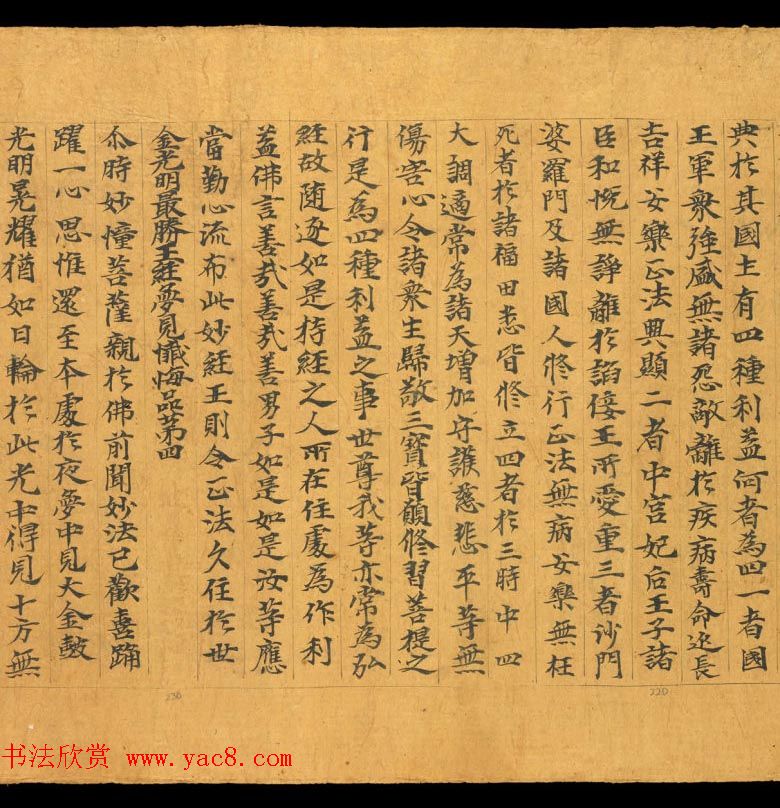 典於其國主有四種利益何者為四一者國
王軍衆強盛無諸怨敵離於疾病壽命延長
吉祥安樂正法興顯二者中宮妃后王子諸
臣和悅無諍離於諂佞王所愛重三者沙門
婆羅門及諸國人修行正法無病安樂無枉
死者於諸福田悉皆修立四者於三時中四
大調適常為諸天增加守護慈悲平等無
傷害心令諸衆生歸敬三寶皆願修習菩提之
行是為四種利益之事世尊我等亦常為弘
經故隨逐如是持經之人所在住處為作利
益佛言善哉善哉善男子如是如是汝等應
當勤心流布此妙經王則令正法久住於世
金光明最勝王經夢見懺悔品第四
尒時妙幢菩薩親於佛前聞妙法已歡喜踊
躍一心思惟還至本處於夜夢中見大金鼓
光明晃耀猶如日輪於此光中得見十方無
230
220
书法欣赏 www.yac8.com